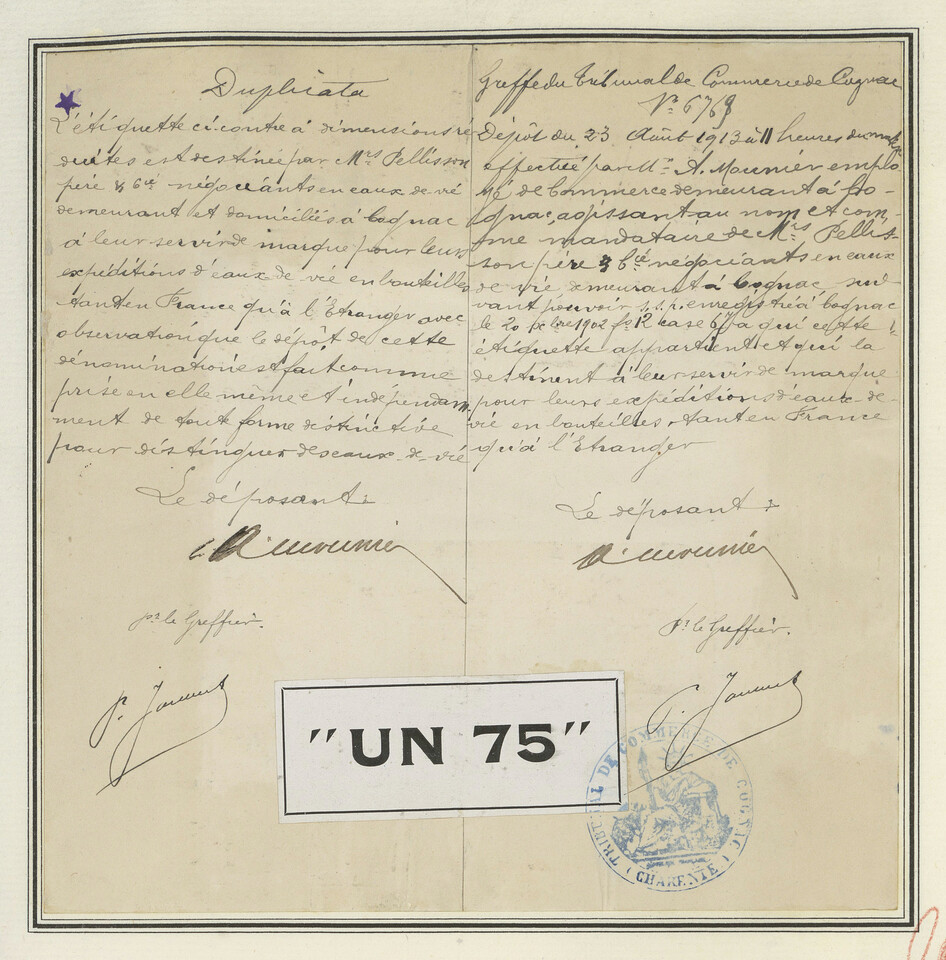 Duplicata
L'étiquette ci-contre à dimensions ré
duites est destinée par Mrs Pellisson
père & Cie négociants en eaux-de-vie
demeurant et domiciliés à Cognac
à leur servir de marque pour leurs
expéditions d'eaux-de-vie en bouteilles
tant en France qu'à l'Etranger avec
observation que le dépôt de cette
dénomination est fait comme
prise en elle même et indépendam-
ment de toute forme distinctive
pour distinguer des eaux-de-vie
Le déposant:
A. Mounier
pr le Greffier.
Greffe du Tribunal de Commerce de Cognac
No 6769
Dépôt du 23 Août 1913 à 11 heures du matin
effectué par Mr A. Mounier emplo
yé de Commerce demeurant à Co-
gnac, agissant au nom et com-
me mandataire de Mrs Pellis-
son père & Cie négociants en eaux
de vie demeurant à Cognac, sui-
vant pouvoir s.s.p. enregistré à Cognac
le 20 xbre 1902 fo 12 case 6 à qui cette
étiquette appartient et qui la
destinent à leur servir de marque
pour leurs expéditions d'eaux-de-
vie en bouteilles, tant en France
qu'à l'Etranger
Le déposant:
A. Mounier
Pr le Greffier.
"UN 75"
TRIBUNAL DE COMMERCE DE COGNAC
(CHARENTE)